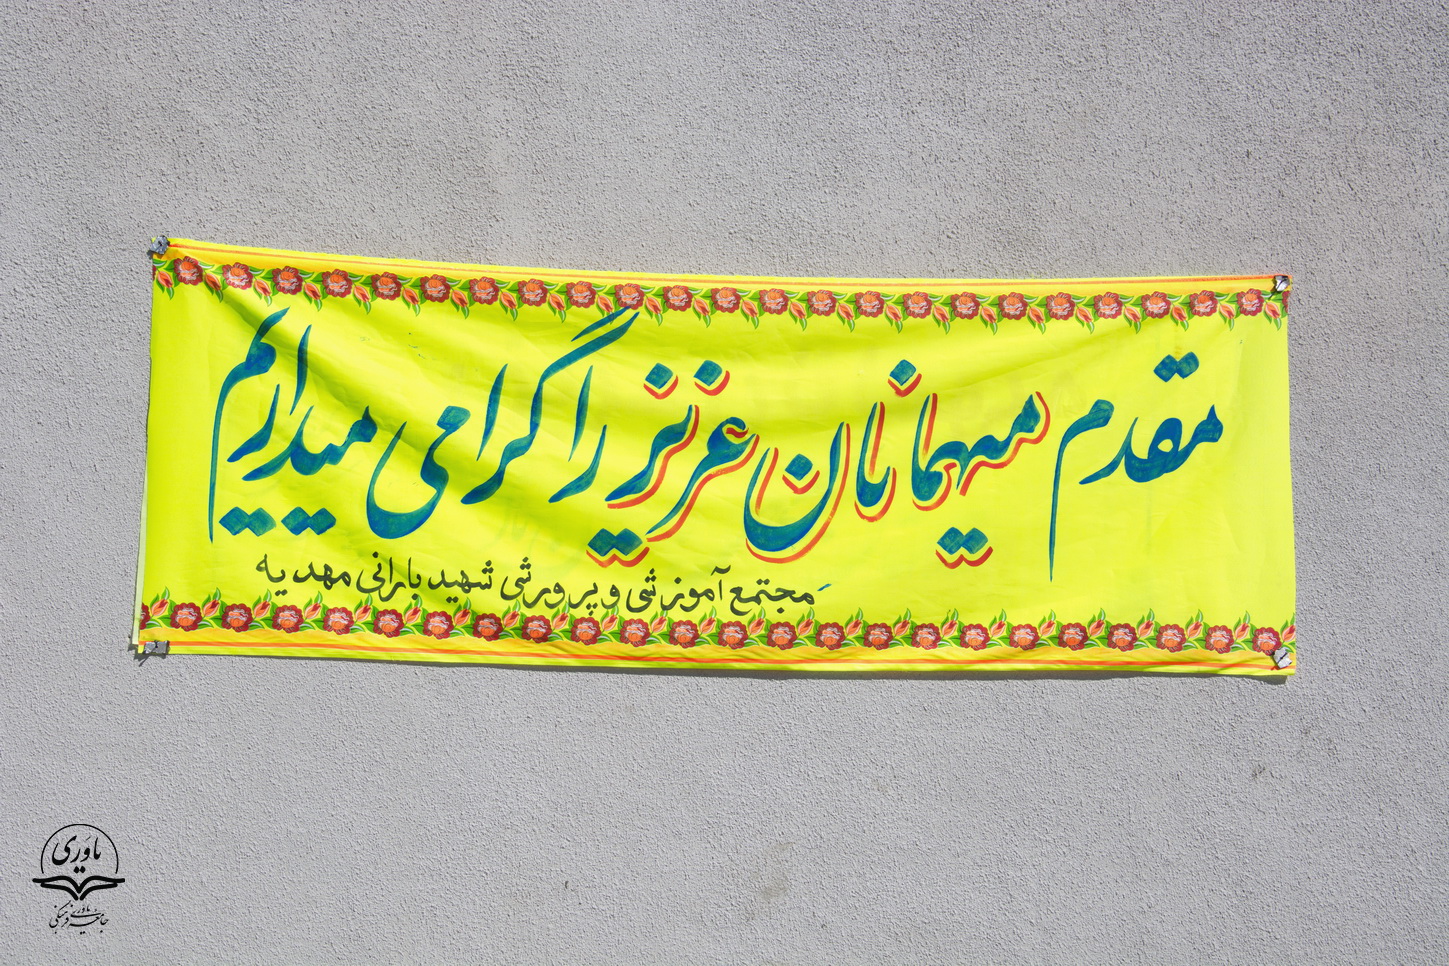 مقدم میهمانان عزیز را گرامی میداریم
مجتمع آموزشی و پرورشی شهید بارانی مهدیه
یاوری
جامعه یاوری فرهنگی